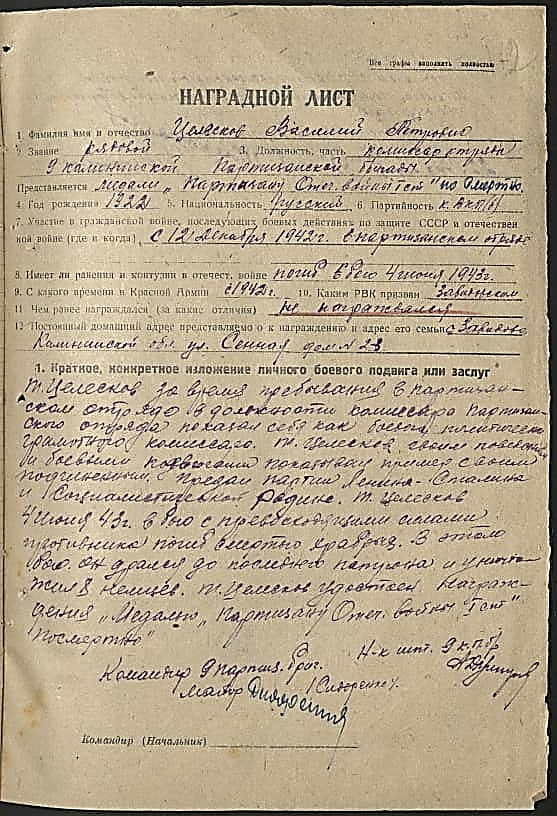 Все графы заполнять полностью
НАГРАДНОЙ ЛИСТ
1. Фамилия имя и отчество Целесков Василий Петрович
2 Звание рядовой 3. Должность, часть комиссар отряда
9 калининской Партизанской бригады
Представляется медали „Партизану Отеч. войны I ст" посмертно
4. Год рождения 1922 5. Национальность русский 6. Партийность к. ВКП(б)
7. Участие в гражданской войне, последующих боевых действиях по защите СССР и отечествен
ной войне (где и когда) с 12 декабря 1942 г. в партизанском отряде
8. Имеет ли ранения и контузии в отечест. войне погиб в бою 4 июня 1943 г.
9. С какого времени в Красной Армии с 1942 г. 10. Каким РВК призван Завидовским
11 Чем ранее награждался (за какие отличия) не награждался
12 Постоянный домашний адрес представляемого к награждению и адрес его семьи с. Завидово
Калининской обл. ул. Сенная дом № 23
1. Краткое, конкретное изложение личного боевого подвига или заслуг
Т. Целесков за время пребывания в партизан-
ском отряде в должности комиссара партизан-
ского отряда показал себя как боевой политически
грамотный комиссар. Т. Целесков своим
и боевыми подвигами показывал пример своим
подчиненным. Предан партии Ленина-Сталина
и Социалистической Родине. Т. Целесков
4 июня 43 г. в бою с превосходящими силами
противника погиб смертью храбрых. В этом
бою он дрался до последнего патрона и уничто-
жил 8 немцев. Т. Целесков удостоен награж-
дения „Медалью „Партизану Отеч. войны I ст"
"Посмертно"
Командир 9 партиз. бриг. Н-к шт. 9 к.п.бр.
майор (Сидоренко).
Командир (Начальник)